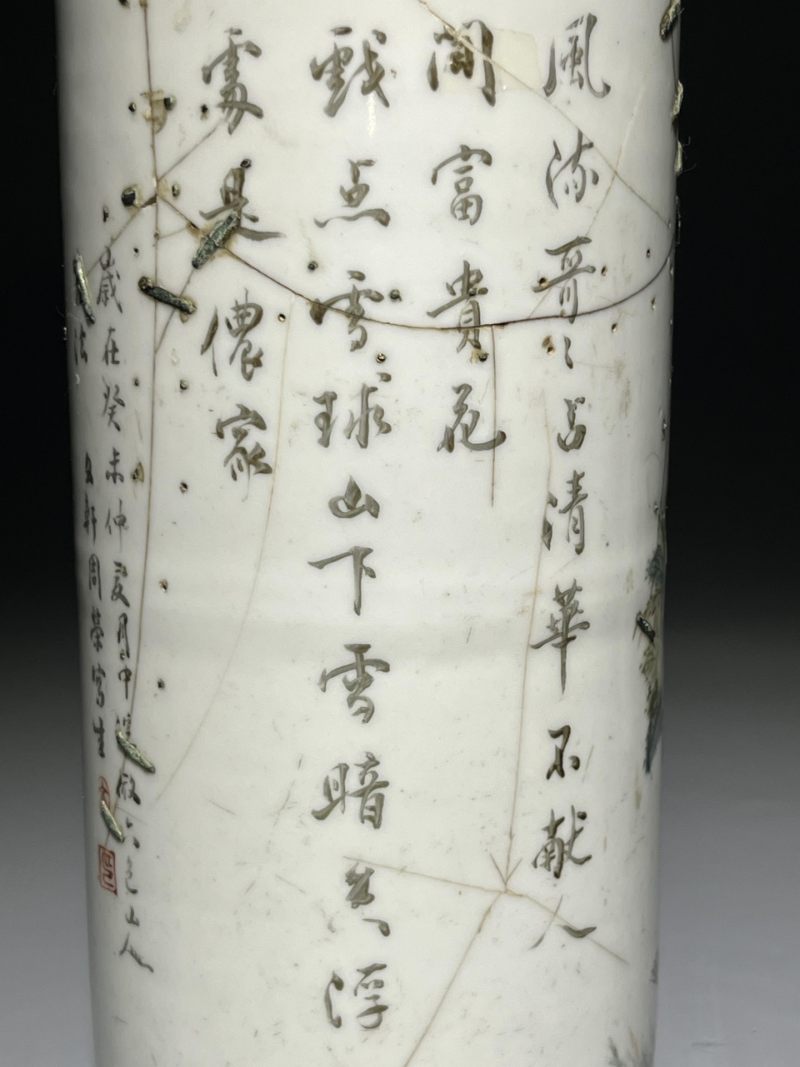 風流哥〻占清華不献人
間富貴花
戲点雪球山下雪暗香浮
處是儂家
歲在癸未仲夏月中浣放六邑山人
法
文軒周榮寫生